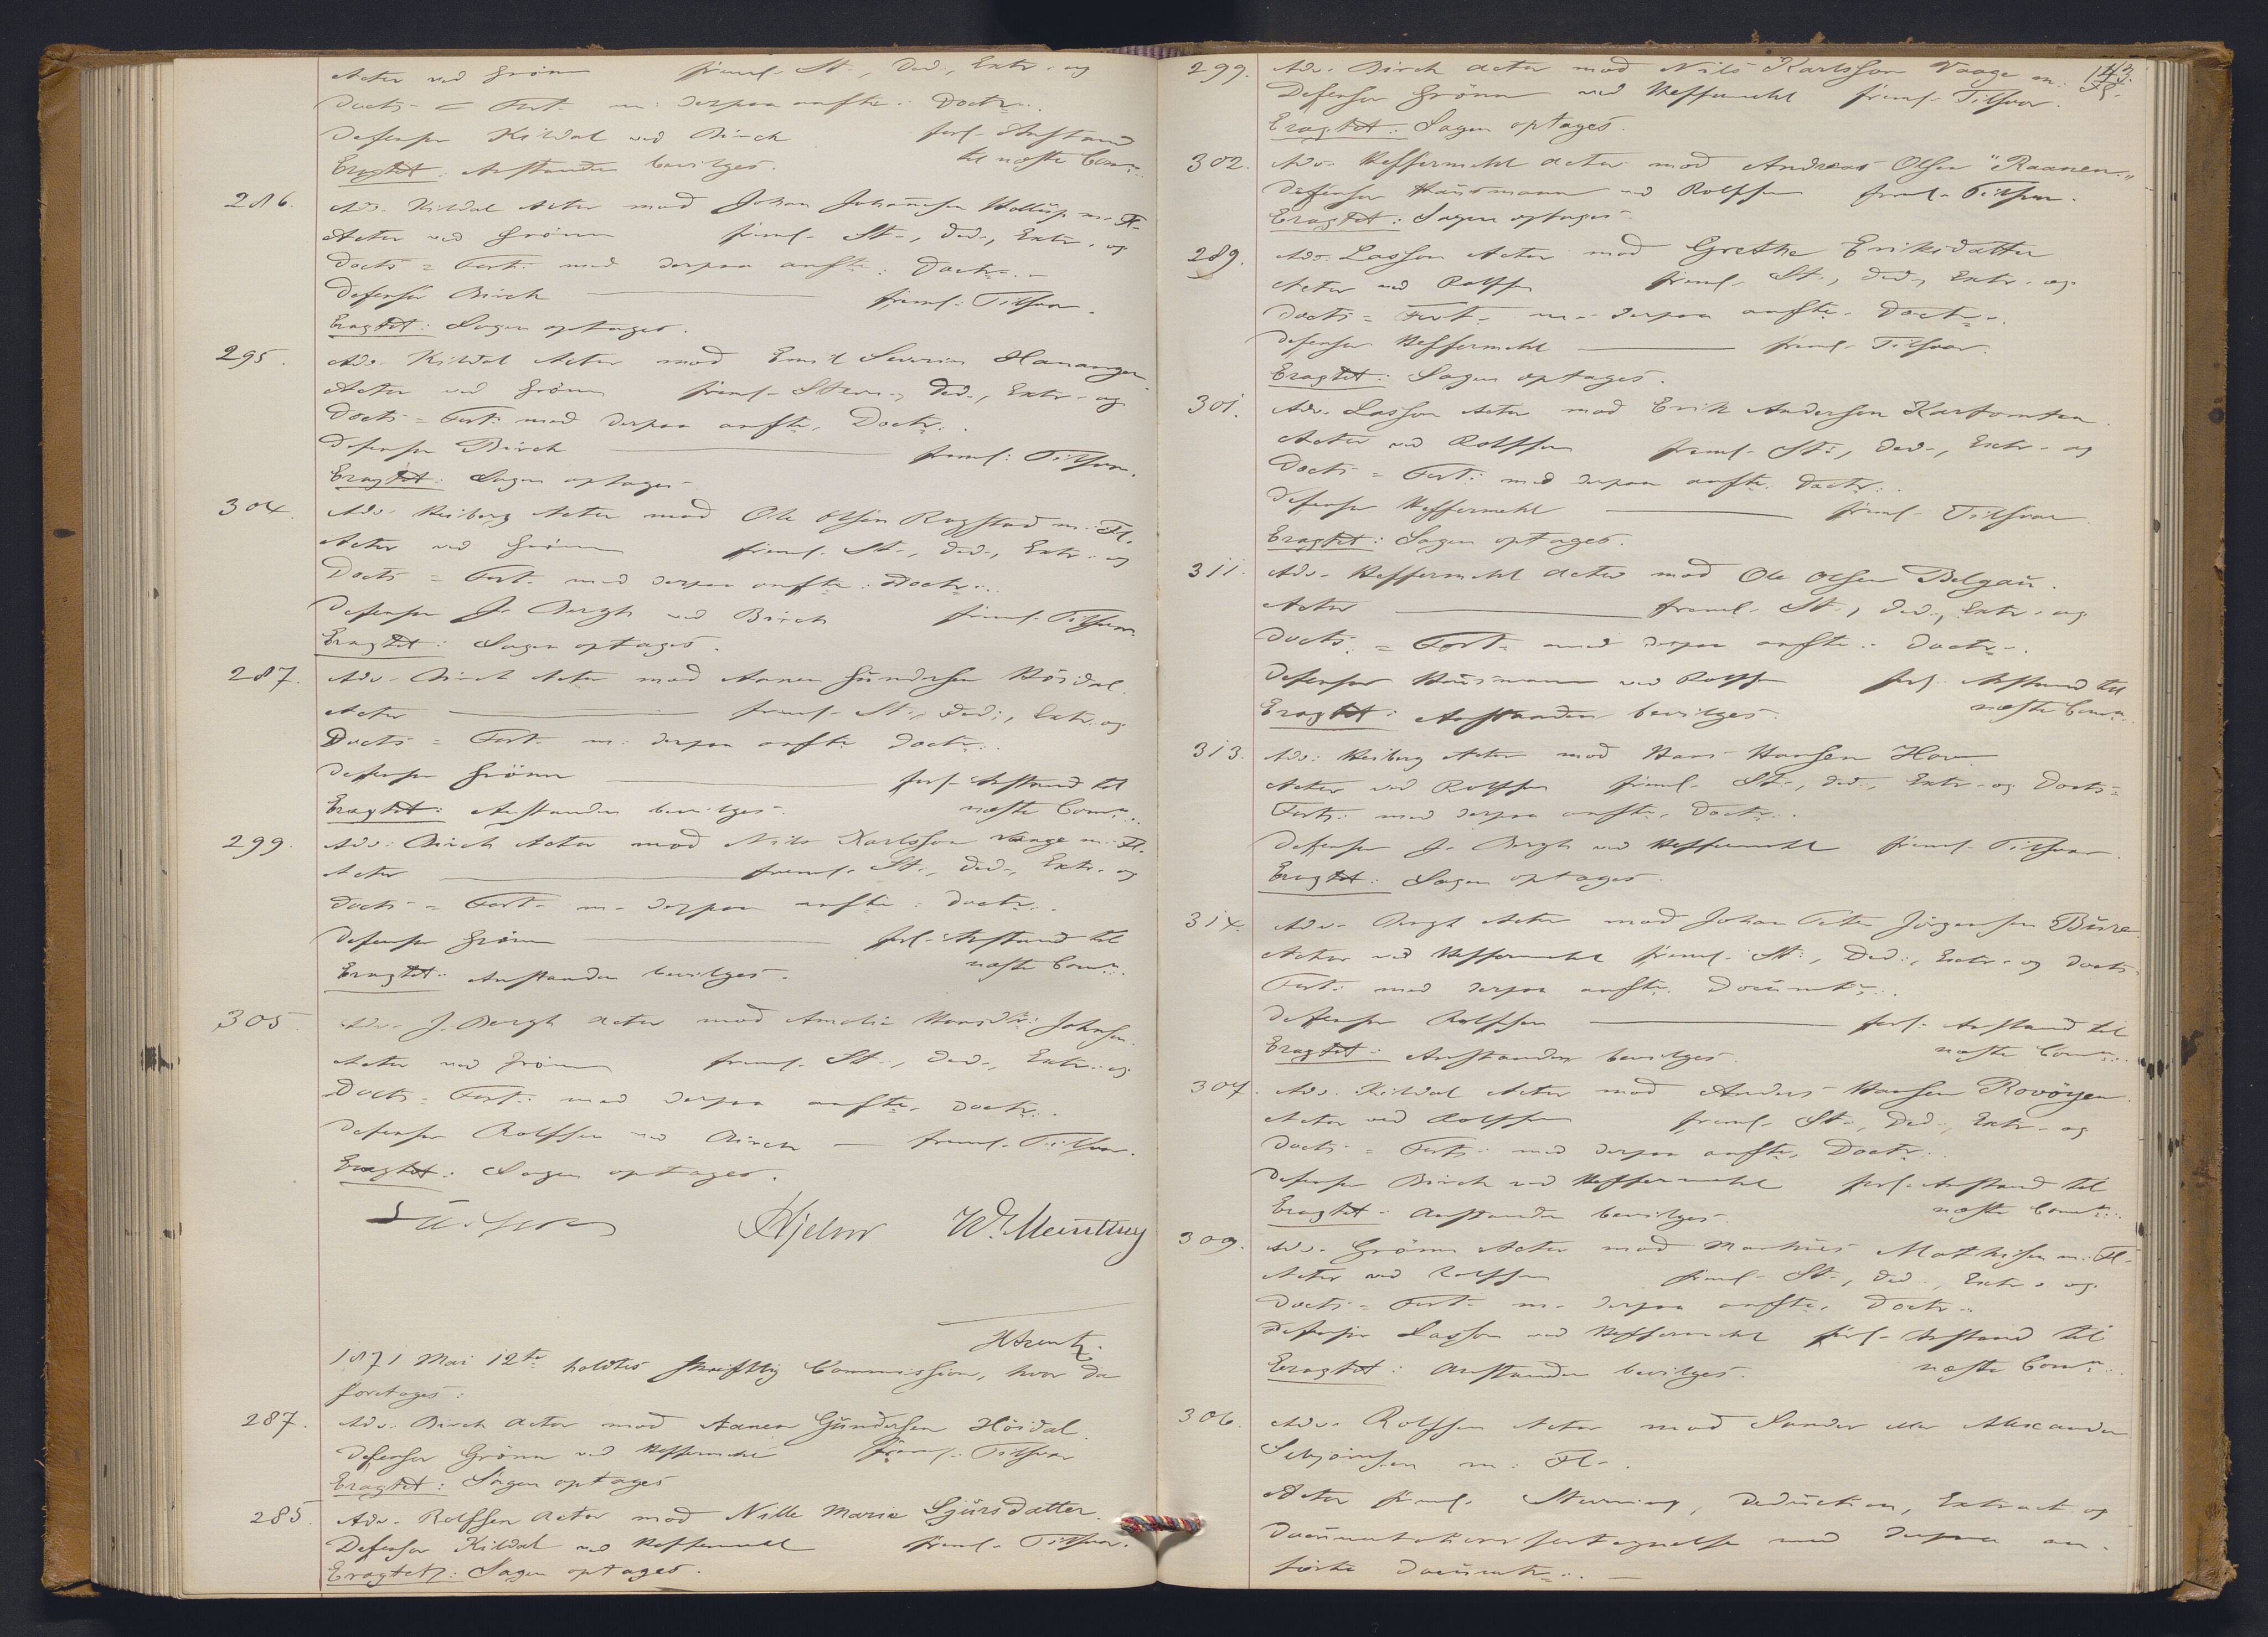 Actor ved Grönn freml. St., Ded., Extr. og
Docts = Fort. m. derpaa anfte. Doctr.
Defensor Kildal ved Birch forl. Anstand
Eragtet. Anstanden bevilges. til næste Comn.
286. Adv. Kildal Actor mod Johan Johannesen m. Fl.
Actor ved Grönn freml. St., Ded., Extr. og
Docts = Fort. med derpaa anfte. Doctr.
Defensor Birch freml. Tilsvar.
Eragtet: Sagen optages.
295. Adv. Kildal Actor mod Emil Severin Hananger.
Actor ved Grönn freml. Stevn., Ded., Extr. og
Docts = Fort. med derpaa anfte. Doctr.
Defensor Birch freml. Tilsvar.
Eragtet: Sagen optages.
304. Adv. Heiberg Actor mod Ole Olsen Rogstad m. Fl.
Actor ved Grönn freml. St., Ded., Extr. og
Docts = Fort. med derpaa anfte. Doctr.
Defensor J. Bergh ved Birch freml. Tilsvar.
Eragtet: Sagen optages.
287. Adv. Birch Actor mod Aanen Gundersen Höidal.
Actor freml. St., Ded., Extr. og
Docts = Fort. m. derpaa anfte Doctr.
Defensor Grönn forl. Anstand til
Eragtet: Anstanden bevilges. næste Comn.
299. Adv. Birch Actor mod Nils Karlsson Vaage m. Fl.
Actor freml. St., Ded., Extr. og
Docts = Fort. m. derpaa anfte. Doctr.
Defensor Grönn forl. Anstand til
Eragtet: Anstanden bevilges. næste Comn.
305. Adv. J. Bergh Actor mod Amalie Hansdtr. Johnsen.
Actor ved Grönn freml. St., Ded., Extr. og
Docts = Fort. med derpaa anfte. Doctr.
Defensor Rolfsen ved Birch freml. Tilsvar.
Eragtet: Sagen optages.
Hjelm
1871 Mai 12te holdtes skriftlig Commission, hvor da
foretoges:
287. Adv. Birch Actor mod Aanen Gundersen Höidal.
Defensor Grönn ved Heffermehl freml. Tilsvar
Eragtet: Sagen optages
285. Adv. Rolfsen Actor mod Nille Maria Sjursdatter.
Defensor Kildal ved Heffermehl freml. Tilsvar.
Eragtet: Sagen optages.
143.
299. Adv. Birch Actor mod Nils Karlsson Vaage m. Fl.
Defensor Grönn ved Heffermehl freml. Tilsvar.
Eragtet: Sagen optages.
302. Adv. Heffermehl Actor mod Andreas Olsen "Raanen."
Defensor Hausmann ved Rolfsen freml. Tilsvar.
Eragtet: Sagen optages.
289. Adv. Lasson Actor mod Grethe Eriksdatter
Actor ved Rolfsen freml. St., Ded., Extr. og
Docts = Fort. m. derpaa anfte. Doctr.
Defensor Heffermehl freml. Tilsvar.
Eragtet: Sagen optages.
301. Adv. Lasson Actor mod Erik Andersen Kartomten.
Actor ved Rolfsen freml. St., Ded., Extr. og
Docts = Fort. med derpaa anfte. Doctr.
Defensor Heffermehl freml. Tilsvar.
Eragtet: Sagen optages.
311. Adv. Heffermehl Actor mod Ole Olsen Belgau.
Actor freml. St., Ded., Extr. og
Docts = Fort. med derpaa anfte. Doctr.
Defensor Hausmann ved Rolfsen forl. Anstand til
Eragtet: Anstanden bevilges. næste Comn.
313. Adv. Heiberg Actor mod Hans Hansen Hov
Actor ved Rolfsen freml. St., Ded., Extr. og Docts =
Fort. med derpaa anfte. Doctr.
Defensor J. Bergh ved Heffermehl freml. Tilsvar.
Eragtet: Sagen optages.
314. Adv. Bergh Actor mod Johan Peter Jörgensen Bure.
Actor ved Heffermehl freml. St., Ded., Extr. og Docts =
Fort. med derpaa anfte. Documtr.
Defensor Rolfsen forl. Anstand til
Eragtet: Anstanden bevilges. næste Comn.
307. Adv. Kildal Actor mod Anders Hansen Rovöyen.
Actor ved Rolfsen freml. St., Ded., Extr. og
Docts = Fort. med derpaa anfte. Doctr.
Defensor Birch ved Heffermehl forl. Anstand til
Eragtet: Anstanden bevilges. næste Comn.
309. Adv. Grönn Actor mod Markus Mathisen m. Fl.
Actor ved Rolfsen freml. St., Ded., Extr. og
Docts = Fort. m. derpaa anfte. Doctr.
Defensor Lasson ved Heffermehl forl. Anstand til
Eragtet: Anstanden bevilges. næste Comn.
306. Adv. Rolfsen Actor mod Sander eller Alexander
m. Fl.
Actor freml. Stevning, Deduction, Extract og
Documentationsfortegnelse med derpaa an-
förte Documtr.